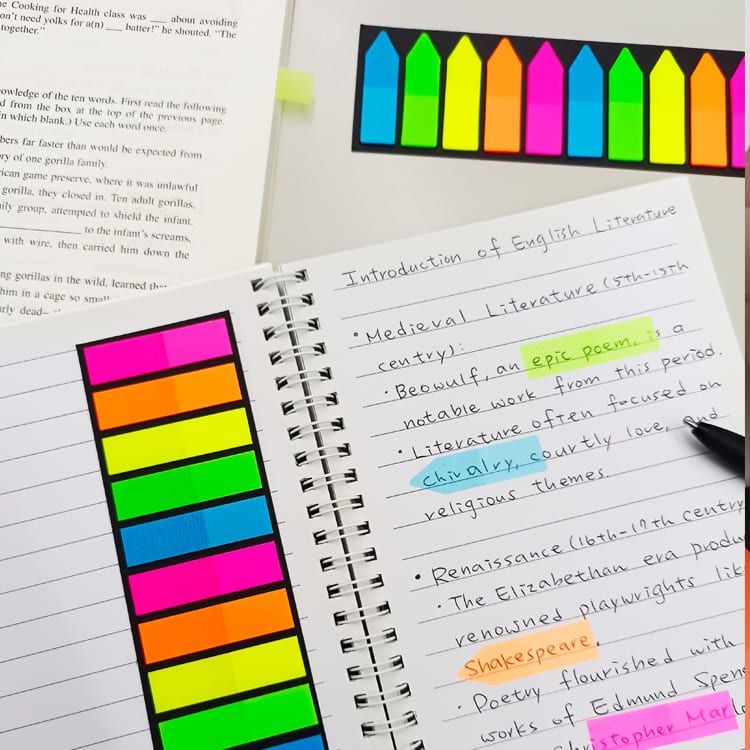 e Cooking for Health class was ___ about avoiding
on't need yolks for a(n) ___ batter!" he shouted. "The
together."
owledge of the ten words. First read the following
d from the box at the top of the previous page.
in which blank.) Use each word once.
bers far faster than would be expected from
ory of one gorilla family.
ican game preserve, where it was unlawful
gorilla, they closed in. Ten adult gorillas,
ily group, attempted to shield the infant.
___ to the infant's screams,
with wire, then carried him down the
ng gorillas in the wild, learned
him in a cage so small
arly dead—
Introduction of English Literature
• Medieval Literature (5th-15th
centry):
· Beowulf, an epic poem, is a
notable work from this period.
· Literature often focused on
chivalry, courtly love, and
religious themes.
• Renaissance (16th-17th centry
· The Elizabethan era produ
renowned playwrights lik
Shakespeare.
· Poetry flourished with
works of Edmund Spens
Christopher Marlo